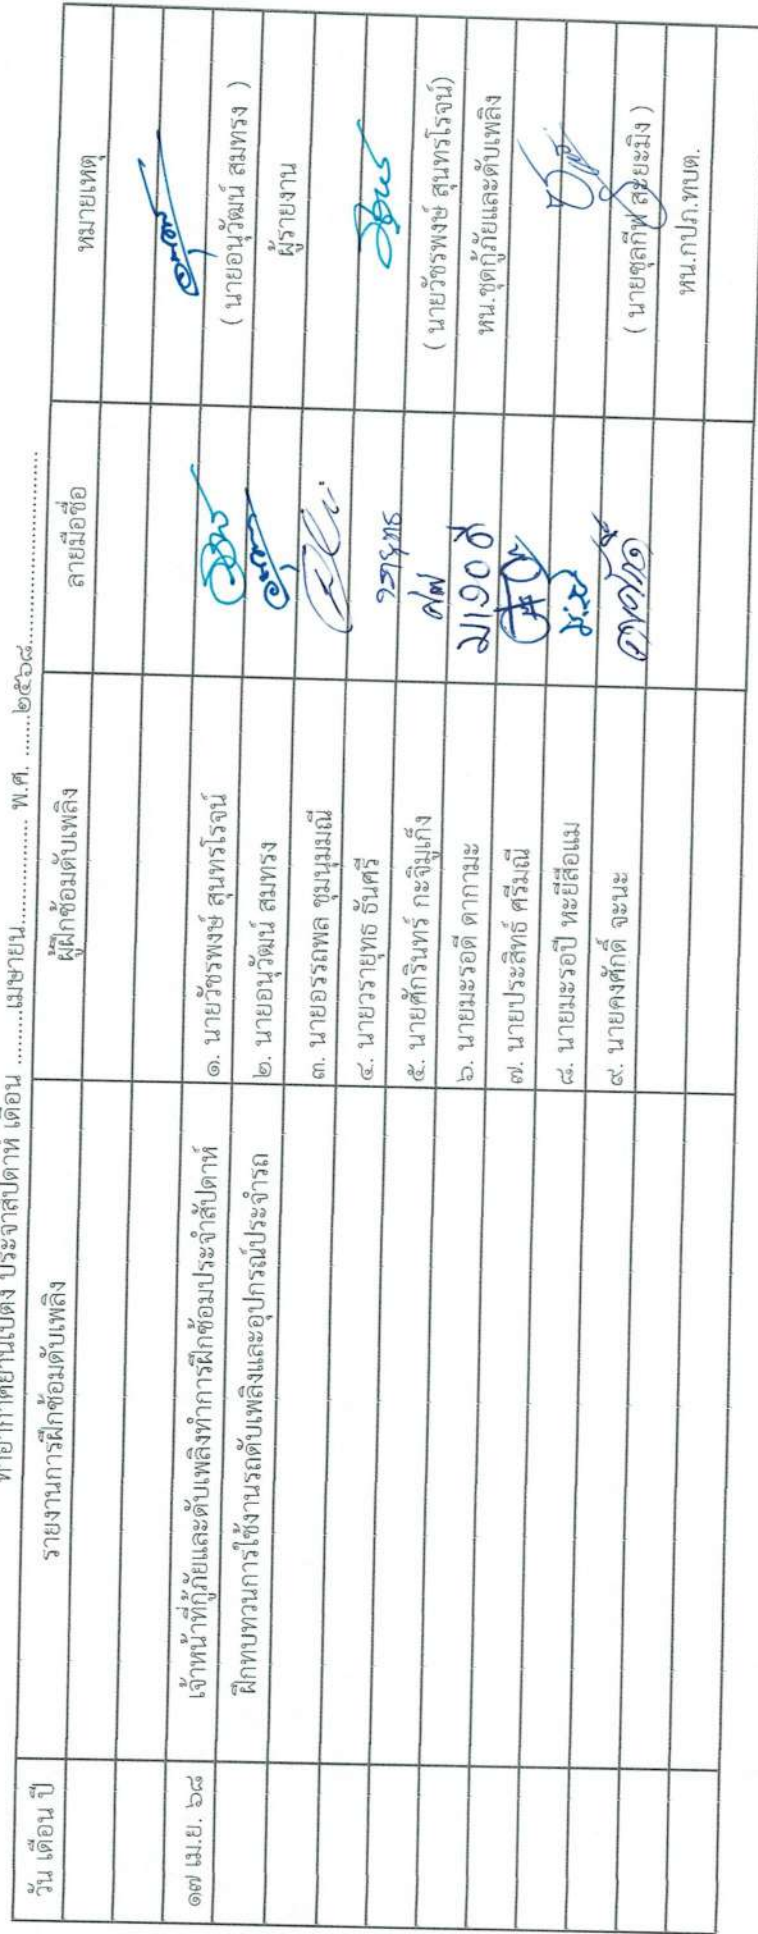 ท่าอากาศยานเบตง ประจำสัปดาห์ เดือน ..........เมษายน.................. พ.ศ. .......๒๕๖๘...............................
วัน เดือน ปี รายงานการฝึกซ้อมดับเพลิง ผู้ฝึกซ้อมดับเพลิง ลายมือชื่อ หมายเหตุ
๑๗ เม.ย. ๖๘ เจ้าหน้าที่กู้ภัยและดับเพลิงทำการฝึกซ้อมประจำสัปดาห์ ๑. นายวัชรพงษ์ สุนทรโรจน์ ( นายอนุวัฒน์ สมทรง )
ฝึกทบทวนการใช้งานรถดับเพลิงและอุปกรณ์ประจำรถ ๒. นายอนุวัฒน์ สมทรง ผู้รายงาน
๓. นายอรรถพล ชุมนุมมณี
๔. นายวรายุทธ ธันศรี วรายุทธ
๕. นายศักรินทร์ กะจิมูเก็ง ( นายวัชรพงษ์ สุนทรโรจน์)
๖. นายมะรอดี ดากามะ หน.ชุดกู้ภัยและดับเพลิง
๗. นายประสิทธ์ ศรีมณี
๘. นายมะรอปี หะยีสือแม
๙. นายคงศักดิ์ จะนะ ( นายซุลกีฟ สะยะมิง )
หน.กปภ.ทบต.